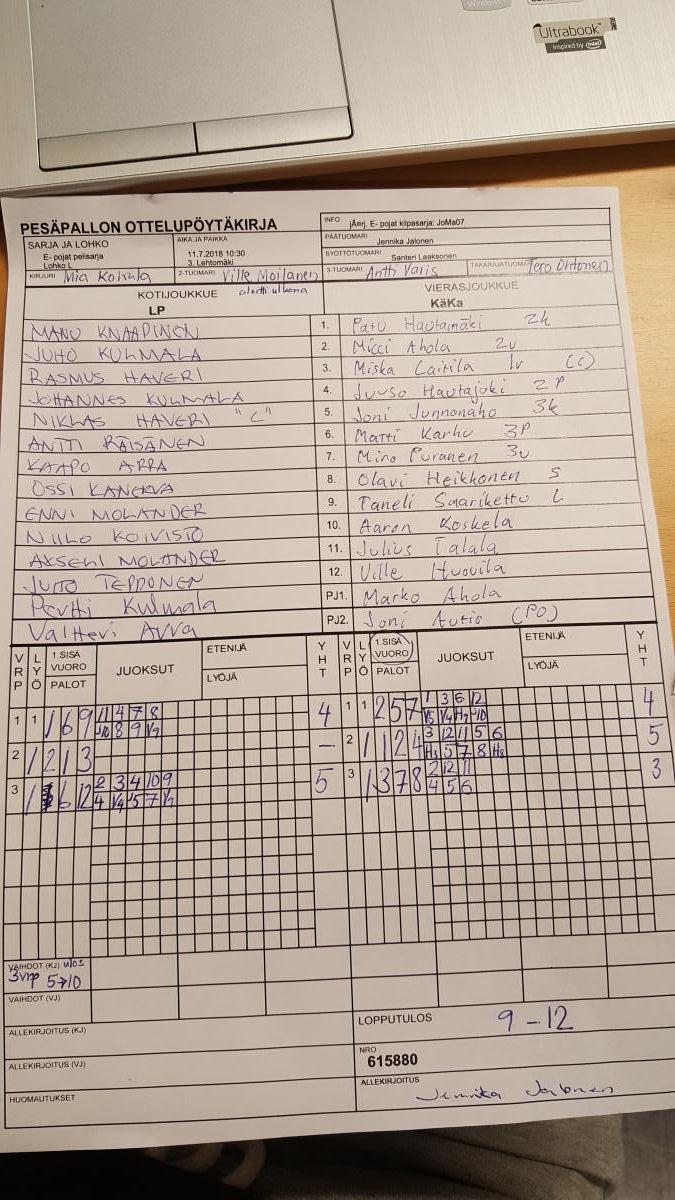 Ultrabook™
Inspired by intel
PESÄPALLON OTTELUPÖYTÄKIRJA
INFO jÄmj. E- pojat kilpasarja: JoMa07
SARJA JA LOHKO
E- pojat pelisarja
Lohko L
AIKA JA PAIKKA
11.7.2018 10:30
3. Lehtomäki
PÄÄTUOMARI Jennika Jalonen
SYÖTTÖTUOMARI Santeri Laaksonen
KIRJURI Mia Koirala
2-TUOMARI Ville Moilanen
3-TUOMARI Antti Varis
TAKARAJATUOMARI Tero
KOTIJOUKKUE aloitti ulkona
LP
VIERASJOUKKUE
KäKa
MANU KNAAPINEN 1. Patu Hautamäki 2k
JUHO KULMALA 2. Micci Ahola 2v
RASMUS HAVERI 3. Miska Laitila lv (c)
JOHANNES KULMALA 4. Juuso Hautajoki 2P
NIKLAS HAVERI "C" 5. Joni Junnonaho 3k
ANTTI RÄISÄNEN 6. Matti Karhu 3P
KAAPO ARRA 7. Miro Puranen 3v
OSSI KANERVA 8. Olavi Heikkonen S
ENNI MOLANDER 9. Taneli Saarikettu L
NIILO KOIVISTO 10. Aaron Koskela
AKSELI MOLANDER 11. Julius Talala
JUHO TEPPONEN 12. Ville Huovila
Pertti Kulmala PJ1. Marko Ahola
Valtteri Arra PJ2. Joni Autio (PO)
VRP LYÖ 1.SISÄ VUORO PALOT JUOKSUT ETENIJÄ LYÖJÄ YHT
VRP LYÖ 1.SISÄ VUORO PALOT JUOKSUT ETENIJÄ LYÖJÄ YHT
1 1 1 6 9 11 4 7 8 4
8 9
1 1 2 5 7 1 3 6 12 4
2 1 2 1 3 –
2 1 1 2 4 3 12 11 5 6 5
5 7 8
3 1 6 12 2 3 4 10 9 5
4 5 7
3 1 3 7 8 2 12 11 3
4 5 6
VAIHDOT (KJ) ulos
3vrp 5→10
VAIHDOT (VJ)
ALLEKIRJOITUS (KJ)
LOPPUTULOS 9 – 12
ALLEKIRJOITUS (VJ)
NRO
615880
HUOMAUTUKSET
ALLEKIRJOITUS Jennika Jalonen